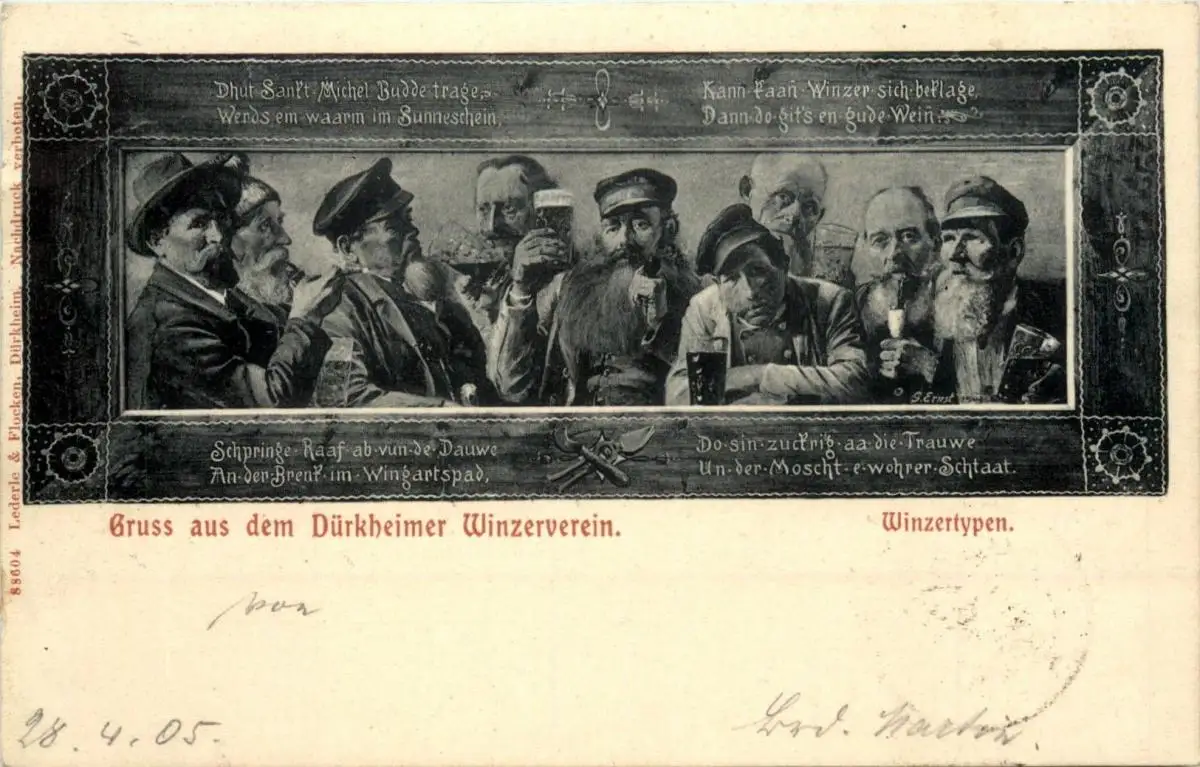 Dhut Sankt Michel Budde trage,
Werds em waarm im Sunneschein,
Kann kaan Winzer sich beklage,
Dann do git's en gude Wein.
G. Ernst
Schpringe Raaf ab vun de Dauwe
An der Brenk im Wingartspad,
Do sin zuckrig aa die Trauwe
Un der Moscht e wohrer Schtaat.
Gruss aus dem Dürkheimer Winzerverein.
Winzertypen.
88604 Lederle & Flocken, Dürkheim. Nachdruck verboten.
von
28. 4. 05.